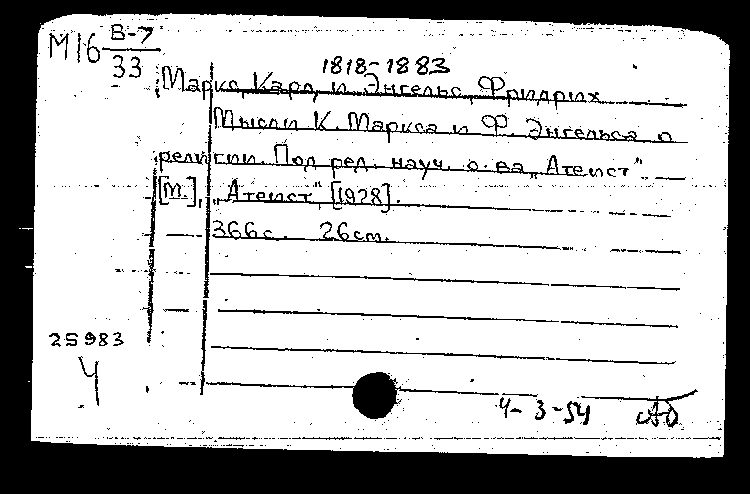 М16 В-7
33
1818-1883
Маркс, Карл, и Энгельс, Фридрих
Мысли К. Маркса и Ф. Энгельса о
религии. Под ред. науч. о-ва „Атеист".
[М.], „Атеист", [1928].
366с. 26см.
25983
Ч
4-3-54 АБ